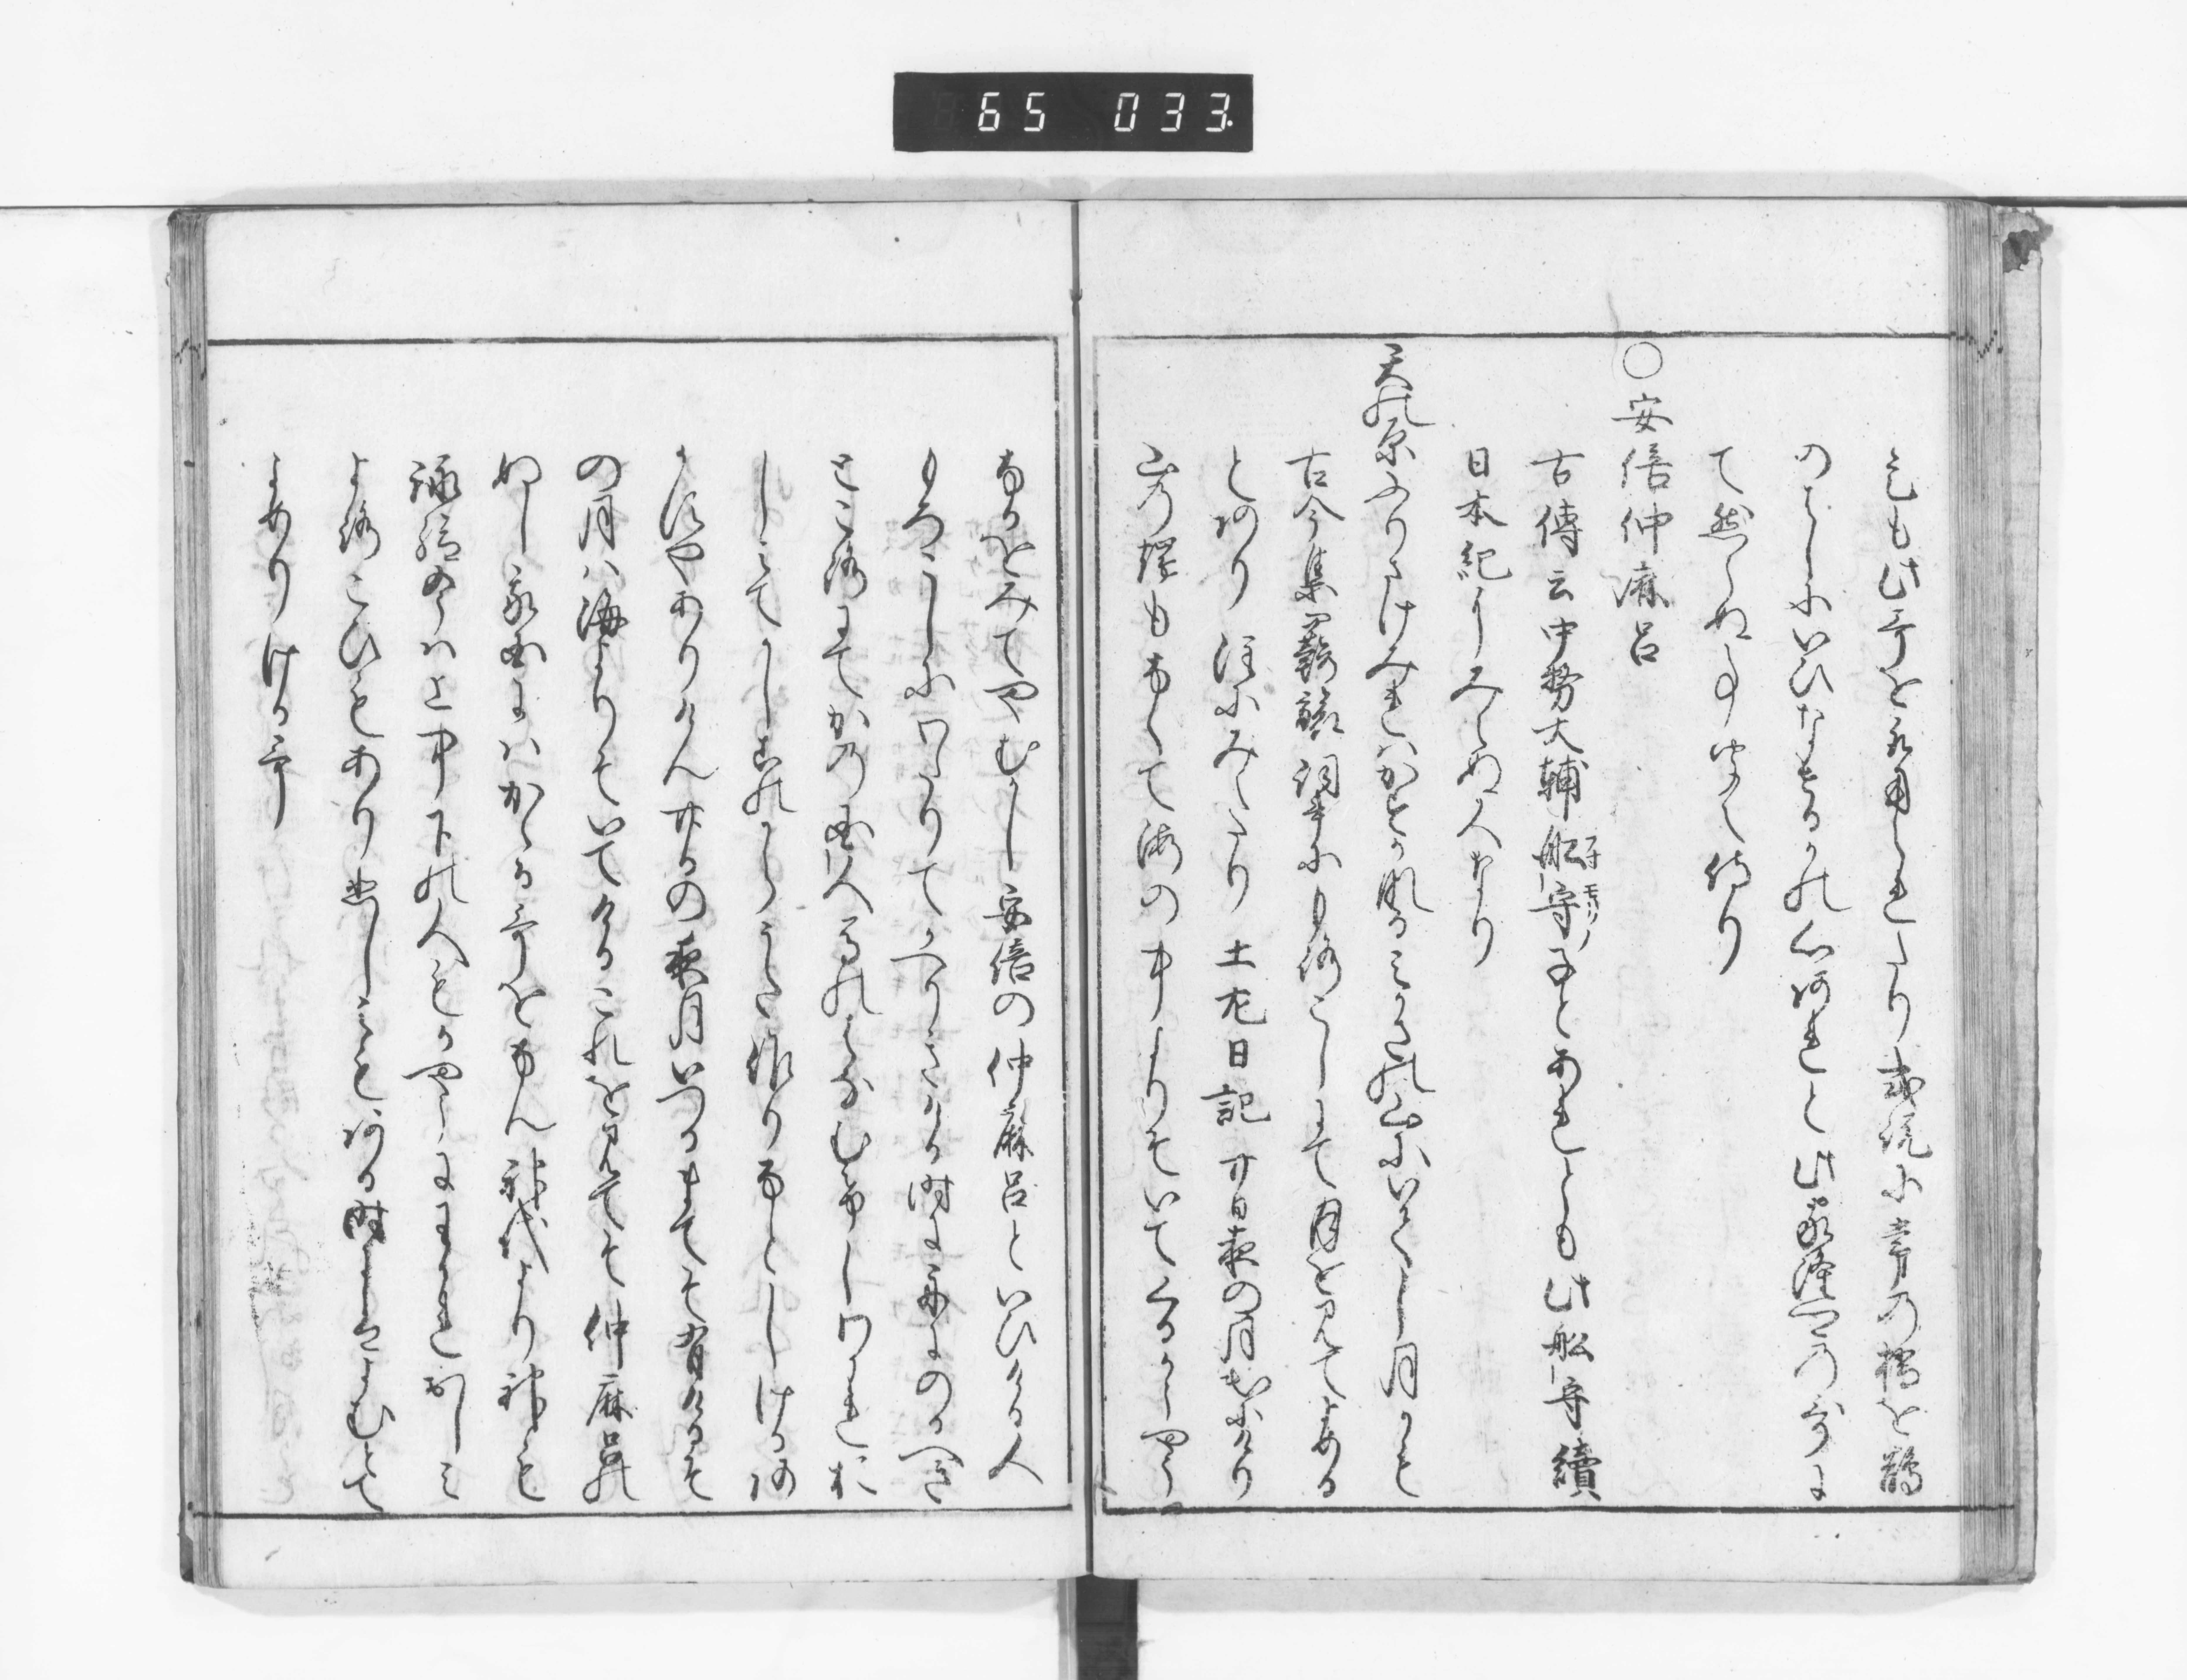 65 033
是も此哥を取用られたり或説に章の橋を鵲
のはしにいひなせるかの心得れと此家隆卿の哥に
て然らぬ事時く侍り
○安倍仲麻呂
古傳云中務大輔船守子とあれとも此船守續
日本紀にみえぬ人なり
天の原ふりさけみれはかすか成みかさの山にいてし月かも
古今集羇旅詞書にもろこしにて月を見てよめる
とあり注にみえたり土左日記廿日の夜の月出にけり
山の端もなくて海の中よりそいてくるかやう
なるをみてやむかし安倍の仲麻呂といひける人
もろこしにわたりてかへりきける時に舟にのるへき
ところにてかの国人馬のはなむけしわかれお
しみてかしこのからうた作りなとしけるあ
かすやありけん廿日の夜月いつるまてそ有けるそ
の月は海よりそいてけるこれを見てそ仲麻呂の
ぬし我国にはかゝる哥をなん神代より神も
よん給ひ今は上中下の人もかやうにわかれおしみ
よろこひもあり悲しみもある時にはよむとて
よめりける哥